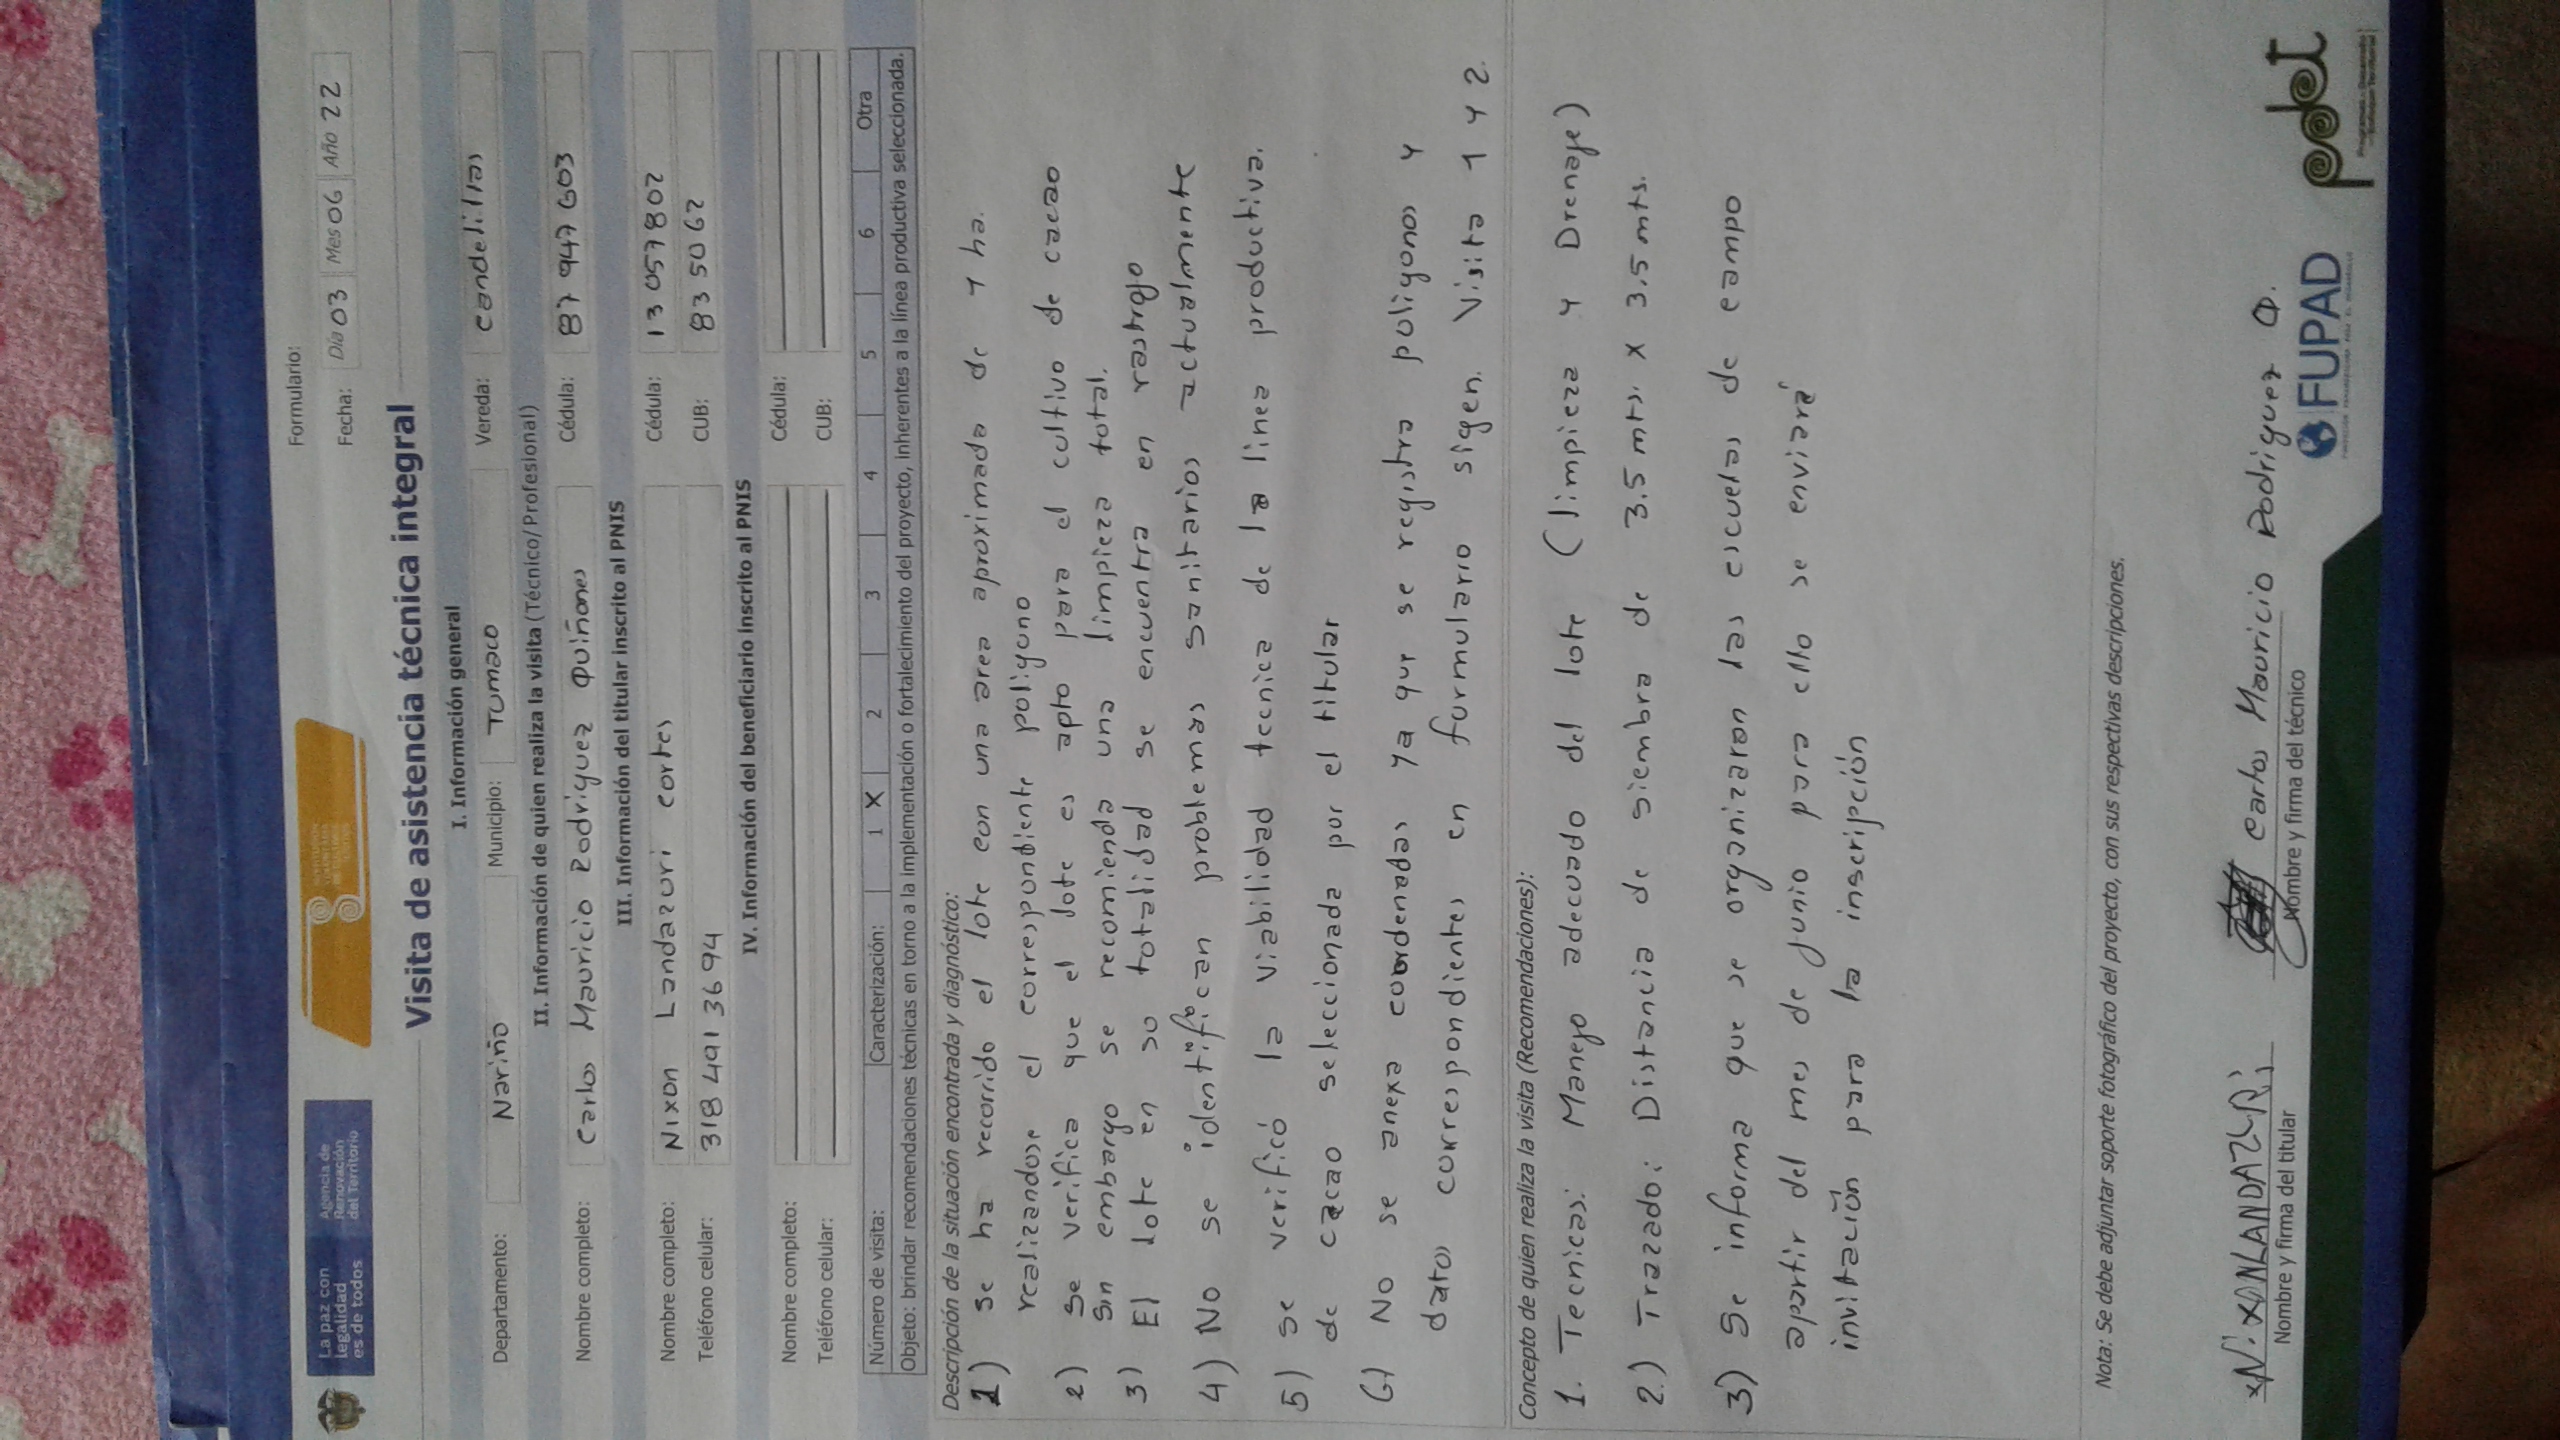 La paz con
legalidad
es de todos
Agencia de
Renovación
del Territorio
Formulario:
Fecha: Día 03 Mes 06 Año 22
Visita de asistencia técnica integral
I. Información general
Departamento: Nariño Municipio: Tumaco Vereda: candelillas
II. Información de quien realiza la visita (Técnico/Profesional)
Nombre completo: Carlos Mauricio Rodriguez Quiñones Cédula: 87 947 603
III. Información del titular inscrito al PNIS
Nombre completo: Nixon Landazuri cortes Cédula: 13 057 802
Teléfono celular: 318 491 36 94 CUB: 83 50 62
IV. Información del beneficiario inscrito al PNIS
Nombre completo: Cédula:
Teléfono celular: CUB:
Número de visita: Caracterización: 1 X 2 3 4 5 6 Otra
Objeto: brindar recomendaciones técnicas en torno a la implementación o fortalecimiento del proyecto, inherentes a la línea productiva seleccionada.
Descripción de la situación encontrada y diagnóstico:
1) se ha recorrido el lote con una area aproximada de 1 ha.
realizandose el correspondiente poligono
2) se verifica que el lote es apto para el cultivo de cacao
sin embargo se recomienda una limpieza total.
3) El lote en su totalidad se encuentra en rastrojo
4) No se identifican problemas sanitarios actualmente
5) se verificó la viabilidad tecnica de la linea productiva.
de cacao seleccionada por el titular
6) No se anexa coordenadas ya que se registra poligonos y
datos correspondientes en formulario sigen. Visita 1 y 2.
Concepto de quien realiza la visita (Recomendaciones):
1. Tecnicas: Manejo adecuado del lote (limpieza y Drenaje)
2.) Trazado: Distancia de siembra de 3.5 mts. x 3.5 mts.
3) Se informa que se organizaron las escuelas de campo
apartir del mes de junio para ello se enviará
invitación para la inscripción
Nota: Se debe adjuntar soporte fotográfico del proyecto, con sus respectivas descripciones.
xNixONLANDAZURi
Nombre y firma del titular
Carlos Mauricio Rodriguez Q.
Nombre y firma del técnico
FUPAD
pdet